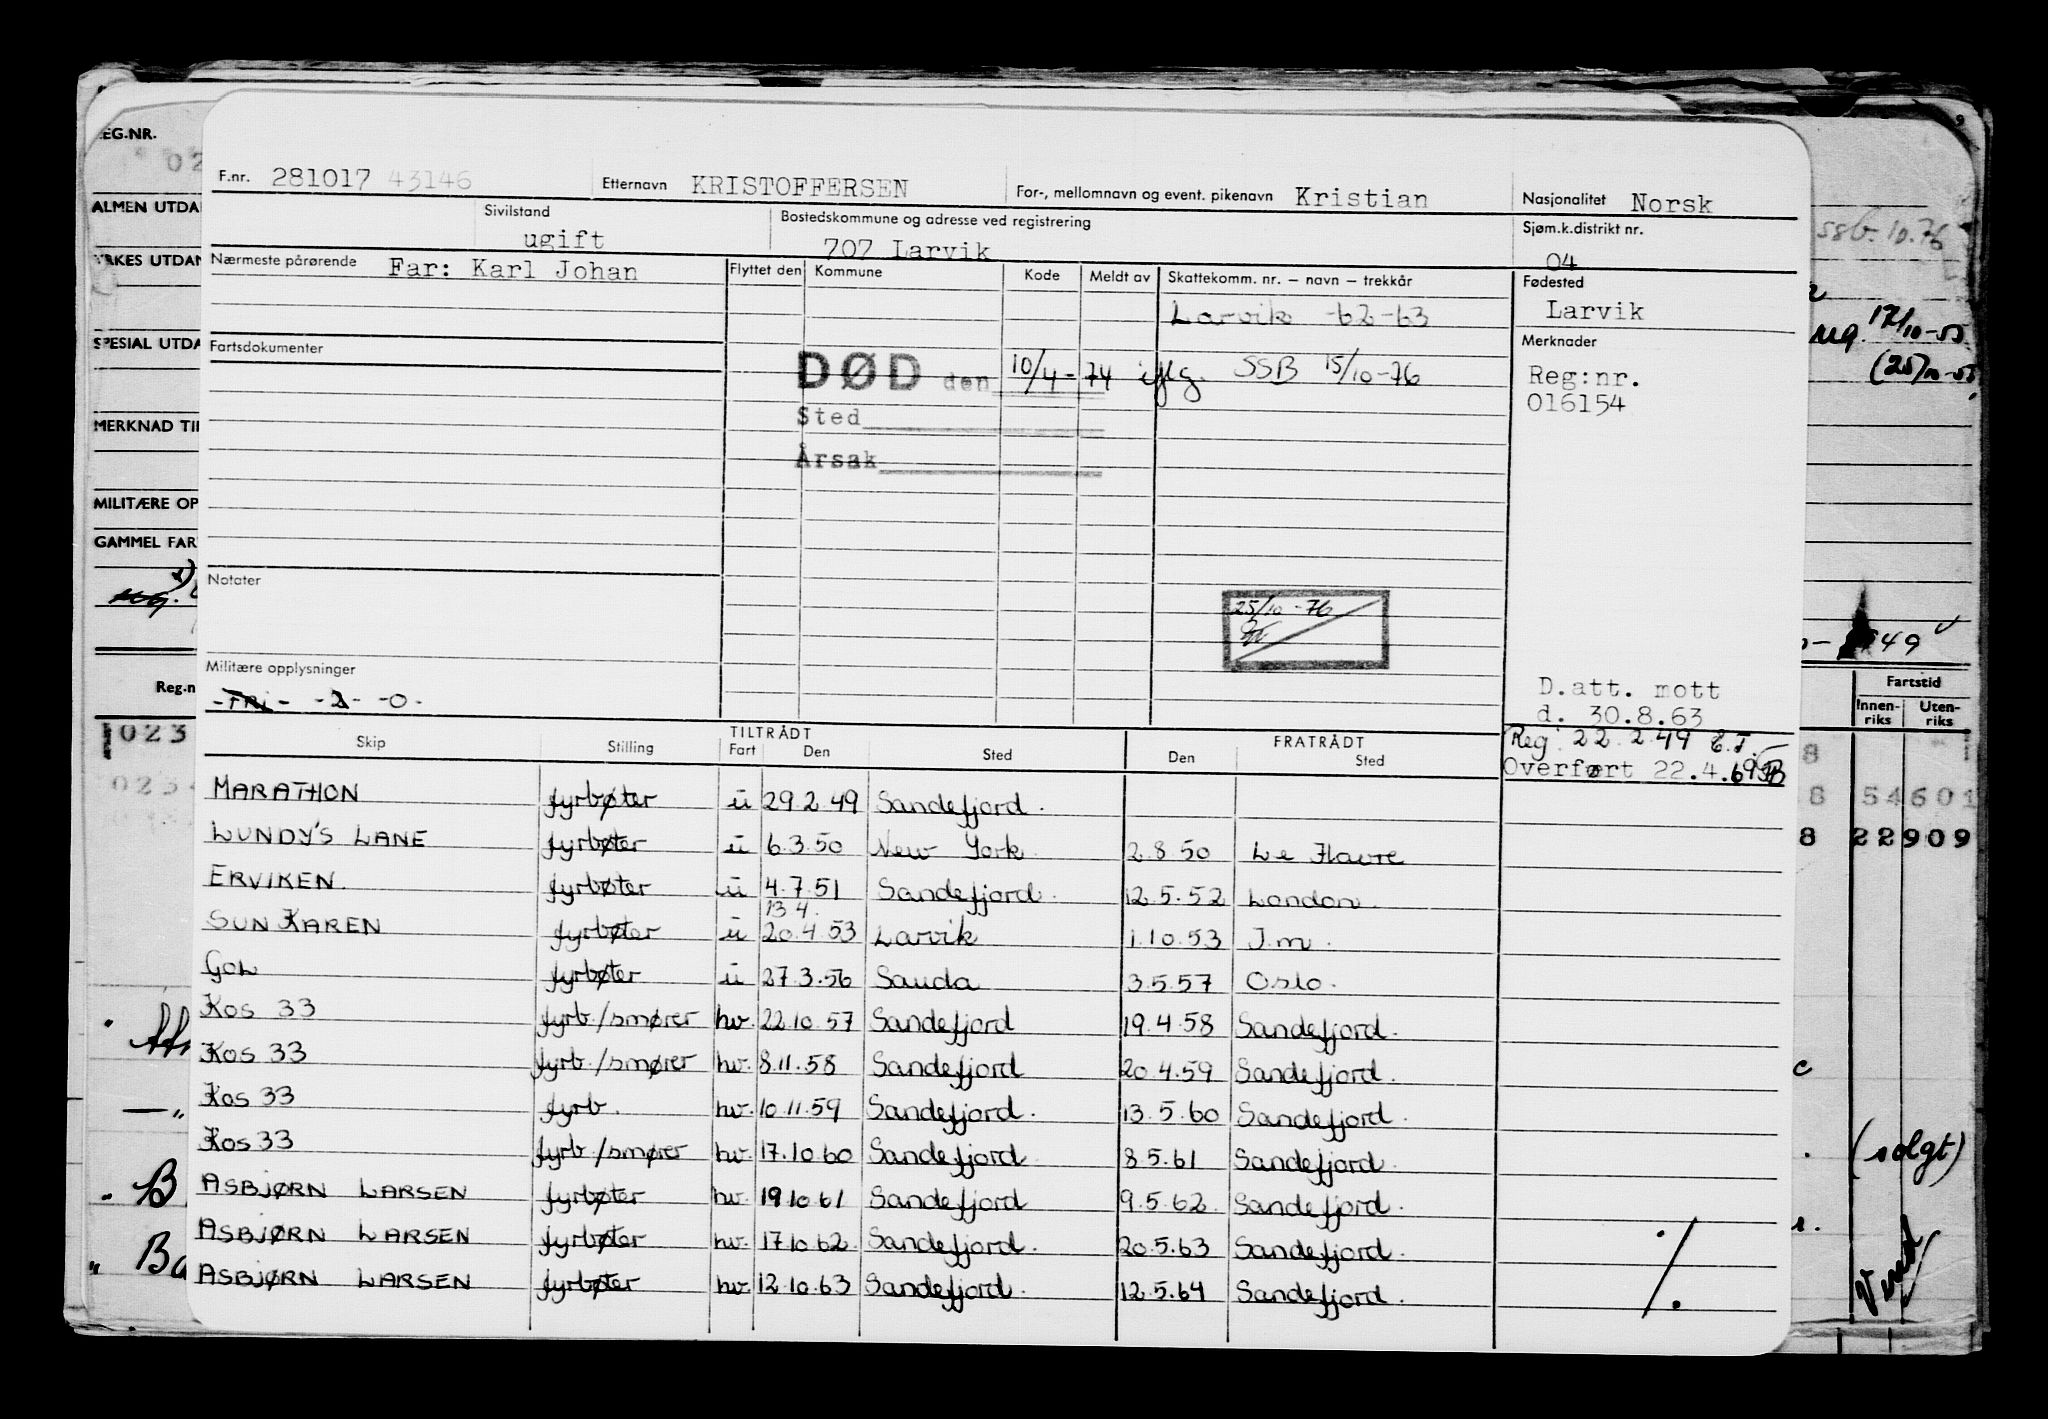 F.nr. 281017 43146 Etternavn KRISTOFFERSEN For-, mellomnavn og event. pikenavn Kristian Nasjonalitet Norsk
Sivilstand ugift Bostedskommune og adresse ved registrering 707 Larvik Sjøm.k.distrikt nr. 04
Nærmeste pårørende Far: Karl Johan Flyttet den Kommune Kode Meldt av Skattekomm. nr. – navn – trekkår Fødested
Larvik -62-63 Larvik
Fartsdokumenter Merknader
DØD den 10/4-74 iflg. SSB 15/10-76 Reg:nr.
016154
Sted
Årsak
Notater
25/10-76
Militære opplysninger
-FRI- -2- -0-
D.att. mott
d. 30.8.63
Reg. 22.2.49
Overført 22.4.69
TILTRÅDT FRATRÅDT
Skip Stilling Fart Den Sted Den Sted
MARATHON fyrbøter u 29.2.49 Sandefjord.
LUNDY'S LANE fyrbøter u 6.3.50 New York 2.8.50 Le Havre
ERVIKEN fyrbøter u 4.7.51 Sandefjord. 12.5.52 London.
13.4.
SUN KAREN fyrbøter u 20.4.53 Larvik 1.10.53 I.m.
GOL fyrbøter u 27.3.56 Sauda 3.5.57 Oslo.
KOS 33 fyrb./smører hv. 22.10.57 Sandefjord 19.4.58 Sandefjord.
KOS 33 fyrb./smører hv. 8.11.58 Sandefjord 20.4.59 Sandefjord.
KOS 33 fyrb. hv. 10.11.59 Sandefjord. 13.5.60 Sandefjord.
KOS 33 fyrb./smører hv. 17.10.60 Sandefjord. 8.5.61 Sandefjord.
ASBJØRN LARSEN fyrbøter hv. 19.10.61 Sandefjord. 9.5.62. Sandefjord.
ASBJØRN LARSEN fyrbøter hv. 17.10.62. Sandefjord. 20.5.63 Sandefjord.
ASBJØRN LARSEN fyrbøter hv. 12.10.63 Sandefjord. 12.5.64 Sandefjord.
REG.NR.
ALMEN UTDA
YRKES UTDAN
SPESIAL UTDA
MERKNAD TIL
MILITÆRE OP
GAMMEL FAR
Reg.n
023
023
SSB. 10.76
17/10-55
(25/10-55
49
Fartstid
Innen-riks Uten-riks
8
8 54601
8 22909
(solgt)